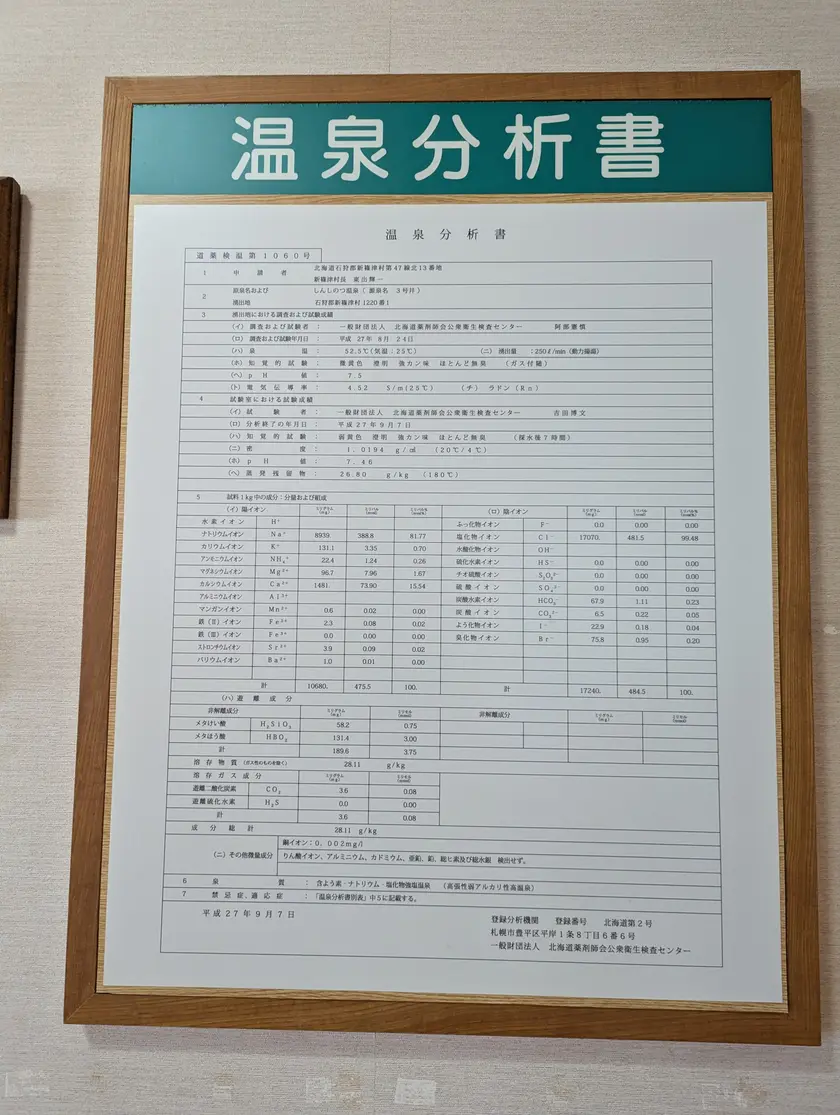 温泉分析書
温泉分析書
道薬検温第1060号
1 申請者 北海道石狩郡新篠津村第47線北13番地
新篠津村長 東出輝一
2 源泉名および しんしのつ温泉（源泉名 3号井）
湧出地 石狩郡新篠津村1220番1
3 湧出地における調査および試験成績
（イ）調査および試験者 ： 一般財団法人 北海道薬剤師会公衆衛生検査センター 阿部憲慎
（ロ）調査および試験年月日 ： 平成27年8月24日
（ハ）泉温 ： 52.5℃（気温：25℃） （ニ）湧出量 ：250ℓ/min（動力揚湯）
（ホ）知覚的試験 ： 微黄色 澄明 強カン味 ほとんど無臭 （ガス付随）
（ヘ）pH値 ： 7.5
（ト）電気伝導率 ： 4.52 S/m（25℃） （チ）ラドン（Rn）
4 試験室における試験成績
（イ）試験者 ： 一般財団法人 北海道薬剤師会公衆衛生検査センター 吉田博文
（ロ）分析終了の年月日 ： 平成27年9月7日
（ハ）知覚的試験 ： 弱黄色 澄明 強カン味 ほとんど無臭 （採水後7時間）
（ニ）密度 ： 1.0194 g/㎤ （20℃/4℃）
（ホ）pH値 ： 7.46
（ヘ）蒸発残留物 ： 26.80 g/kg （180℃）
5 試料1kg中の成分：分量および組成
（イ）陽イオン ミリグラム(mg) ミリバル(mval) ミリバル%(mval%) （ロ）陰イオン ミリグラム(mg) ミリバル(mval) ミリバル%(mval%)
水素イオン H⁺ ふっ化物イオン F⁻ 0.0 0.00 0.00
ナトリウムイオン Na⁺ 8939. 388.8 81.77 塩化物イオン Cl⁻ 17070. 481.5 99.48
カリウムイオン K⁺ 131.1 3.35 0.70 水酸化物イオン OH⁻
アンモニウムイオン NH₄⁺ 22.4 1.24 0.26 硫化水素イオン HS⁻ 0.0 0.00 0.00
マグネシウムイオン Mg²⁺ 96.7 7.96 1.67 チオ硫酸イオン S₂O₃²⁻ 0.0 0.00 0.00
カルシウムイオン Ca²⁺ 1481. 73.90 15.54 硫酸イオン 0.0 0.00 0.00
アルミニウムイオン Al³⁺ 炭酸水素イオン HCO₃⁻ 67.9 1.11 0.23
マンガンイオン Mn²⁺ 0.6 0.02 0.00 炭酸イオン CO₃²⁻ 6.5 0.22 0.05
鉄（Ⅱ）イオン Fe²⁺ 2.3 0.08 0.02 よう化物イオン I⁻ 22.9 0.18 0.04
鉄（Ⅲ）イオン Fe³⁺ 0.0 0.00 0.00 臭化物イオン Br⁻ 75.8 0.95 0.20
ストロンチウムイオン Sr²⁺ 3.9 0.09 0.02
バリウムイオン Ba²⁺ 1.0 0.01 0.00
計 10680. 475.5 100. 計 17240. 484.5 100.
（ハ）遊離成分
非解離成分 ミリグラム(mg) ミリモル(mmol) 非解離成分 ミリグラム(mg) ミリモル(mmol)
メタけい酸 H₂SiO₃ 58.2 0.75
メタほう酸 HBO₂ 131.4 3.00
計 189.6 3.75
溶存物質（ガス性のものを除く） 28.11 g/kg
溶存ガス成分 ミリグラム(mg) ミリモル(mmol)
遊離二酸化炭素 CO₂ 3.6 0.08
遊離硫化水素 H₂S 0.0 0.00
計 3.6 0.08
成分総計 28.11 g/kg
（ニ）その他微量成分 銅イオン：0.002mg/l
りん酸イオン、アルミニウム、カドミウム、亜鉛、鉛、総ヒ素及び総水銀 検出せず。
6 泉質 ： 含よう素‐ナトリウム‐塩化物強塩温泉 （高張性弱アルカリ性高温泉）
7 禁忌症、適応症 ： 「温泉分析書別表」中5に記載する。
平成27年9月7日
登録分析機関 登録番号 北海道第2号
札幌市豊平区平岸1条8丁目6番6号
一般財団法人 北海道薬剤師会公衆衛生検査センター